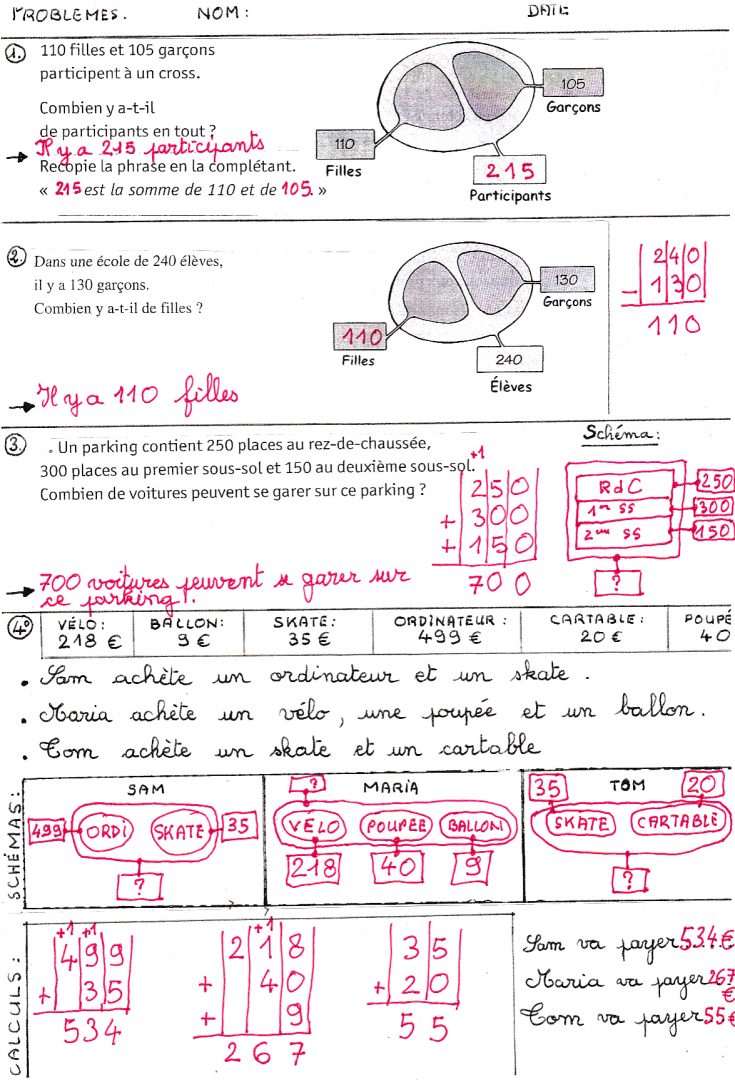 PROBLEMES. NOM : DATE
1. 110 filles et 105 garçons
participent à un cross.
Combien y a-t-il
de participants en tout ?
→ Il y a 215 participants
Recopie la phrase en la complétant.
« 215 est la somme de 110 et de 105. »
105
Garçons
110
Filles
215
Participants
2. Dans une école de 240 élèves,
il y a 130 garçons.
Combien y a-t-il de filles ?
→ Il y a 110 filles
130
Garçons
110
Filles
240
Élèves
240
- 130
110
3. . Un parking contient 250 places au rez-de-chaussée,
300 places au premier sous-sol et 150 au deuxième sous-sol.
Combien de voitures peuvent se garer sur ce parking ?
→ 700 voitures peuvent se garer sur
ce parking !.
+1
250
+ 300
+ 150
700
Schéma :
RdC 250
1er SS 300
2ème SS 150
?
4° VÉLO : BALLON: SKATE: ORDINATEUR : CARTABLE : POUPÉ
218 € 9 € 35 € 499 € 20 € 40
. Sam achète un ordinateur et un skate .
. Maria achète un vélo, une poupée et un ballon.
. Tom achète un skate et un cartable
SCHÉMAS :
SAM
499 ORDI SKATE 35
?
MARIA
?
VÉLO POUPÉE BALLON
218 40 9
TOM
35 20
SKATE CARTABLE
?
CALCULS :
+1 +1
499
+ 35
534
+1
218
+ 40
+ 9
267
35
+ 20
55
Sam va payer 534 €
Maria va payer 267 €
Tom va payer 55 €